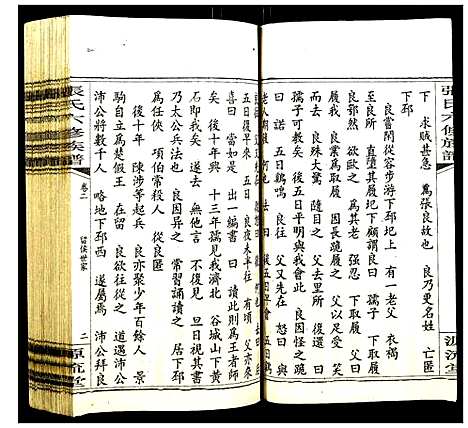 張氏六修族譜
源流堂
下 求賊甚急 為張良故也 良乃更名姓 亡匿
下邳
良嘗閒從容步游下邳圯上 有一老父 衣褐
至良所 直墮其履圯下顧謂良曰 孺子 下取履
良鄂然 欲歐之 為其老 强忍 下取履 父曰
履我 良業為取履 因長跪履之 父以足受 笑
而去 良殊大驚 隨目之 父去里所 復還 曰
孺子可教矣 後五日平明與我會此 良因怪之跪
五日鷄鳴 良往 父又先在 怒曰 與
老 後 何也 後五日早會 五日
五日復早來 五日 良夜未半往 有頃 父亦來
喜曰 當如是 出一編書 曰 讀此則為王者師
矣 後十年興 十三年孺子見我濟北 谷城山下黃
石即我矣 遂去 無他言 不復見 旦日視其書
乃太公兵法也 良因異之 常習誦讀之 居下邳
為任俠 項伯常殺人 從良匿
後十年 陳涉等起兵 良亦聚少年百餘人 景
駒自立為楚假王 在留 良欲往從之 道遇沛公
沛公將數千人 略地下邳西 遂屬焉 沛公拜良
張氏六修族譜 卷二 留侯世家 二 源流堂